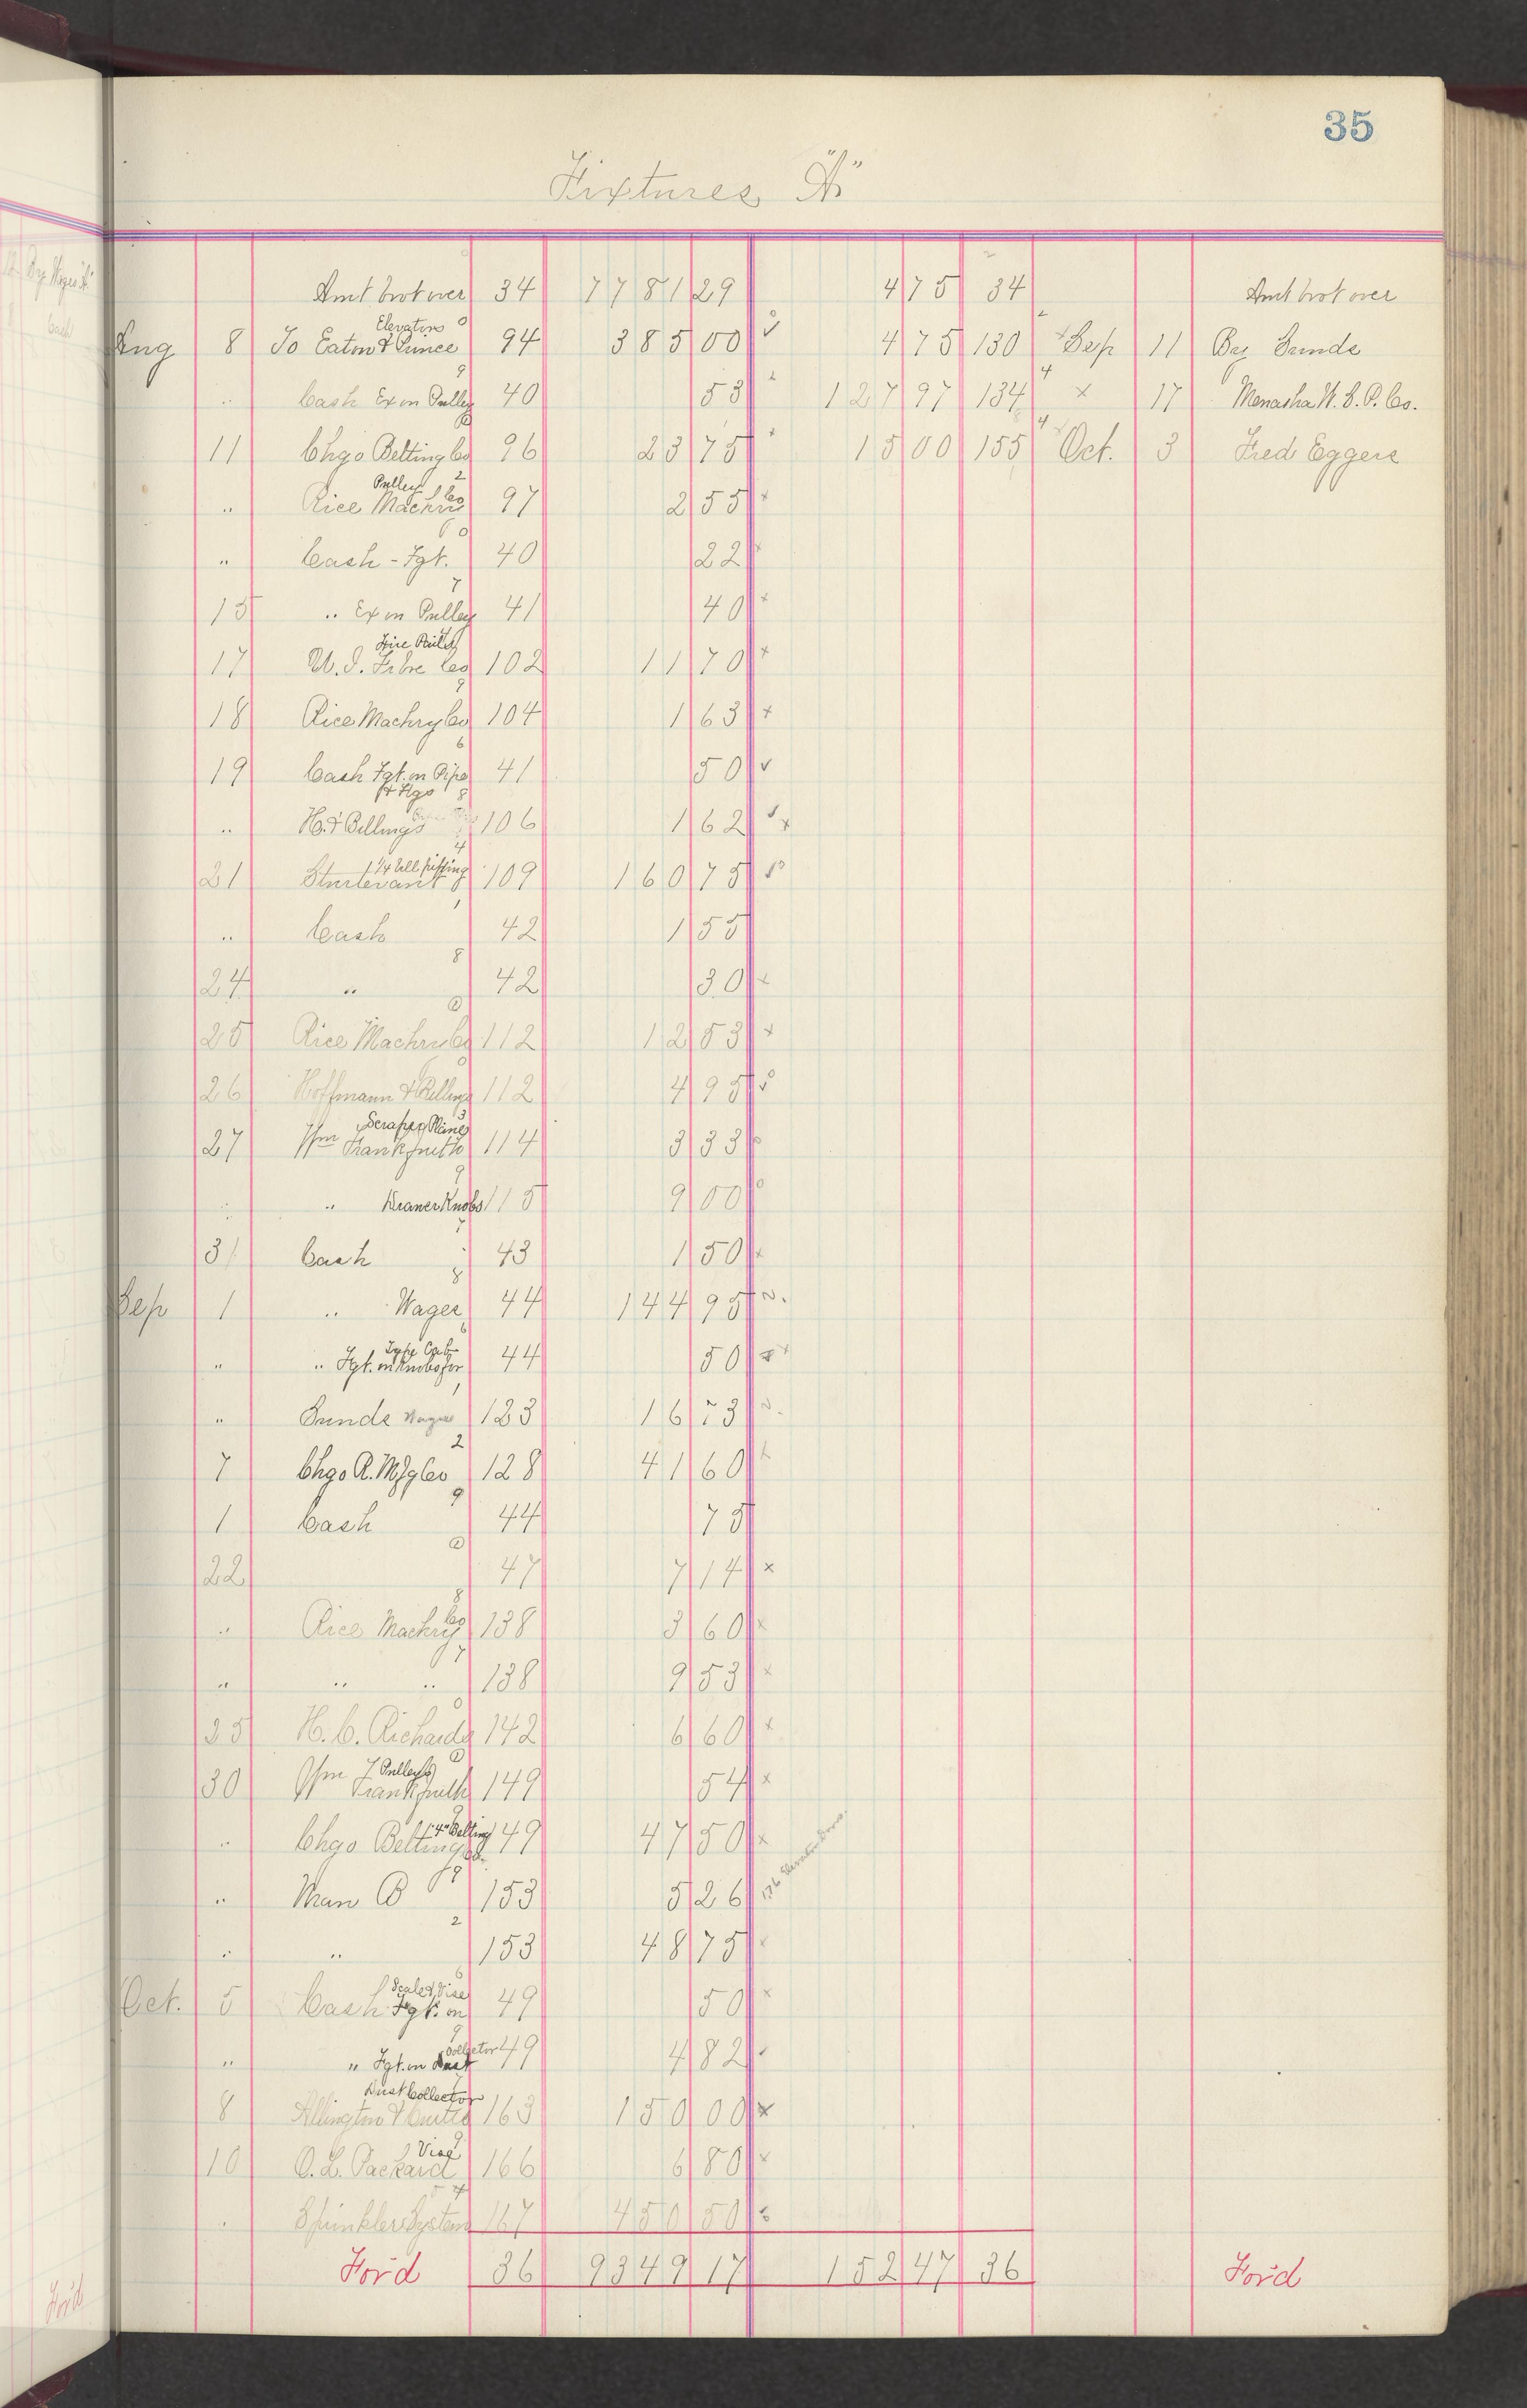 35
Fixtures "A"
Amt brot over 34 7781 29 4 75 34 Amt brot over
Aug 8 To Eaton & Prince Elevators 94 385 00 4 75 130 Sep 11 By Sunds
" Cash Ex on Pulley 40 53 127 97 134 " 17 Menasha W. S. P. Co.
11 Chgo Belting Co 96 23 75 15 00 155 Oct. 3 Fred Eggers
" Rice Machry Co Pulley 97 2 55
" Cash - Fgt. 40 22
15 " Ex on Pulley 41 40
17 U. S. Fibre Co Fire Pails 102 11 70
18 Rice Machry Co 104 1 63
19 Cash Fgt. on Pipe 41 50
" H. & Billings 106 1 62
21 Sturtevant 109 160 75
" Cash 42 1 55
24 " 42 30
25 Rice Machry Co 112 12 53
26 Hoffmann & Billings 112 4 95
27 Wm Frankfurth Scraper Plane 114 3 33
" " Drawer Knobs 115 9 00
31 Cash 43 1 50
Sep 1 " Wages 44 144 95
" " Fgt. on 44 50
" Sunds Wages 123 16 73
7 Chgo R. Mfg Co 128 41 60
1 Cash 44 75
22 47 7 14
" Rice Machry Co 138 3 60
" " " 138 9 53
25 H. C. Richards 142 6 60
30 Wm Frankfurth Pulleys 149 54
" Chgo Belting Co. 4" Belting 149 47 50
" Man B 153 5 26 Elevator Doors
" " 153 48 75
Oct. 5 Cash Fgt. on Scale & Vise 49 50
" " Fgt. on Dust Collector 49 4 82
8 Allington & Curtis Dust Collector 163 150 00
10 O. L. Packard Vise 166 6 80
" Sprinkler System 167 450 50
For'd 36 9349 17 152 47 36 For'd